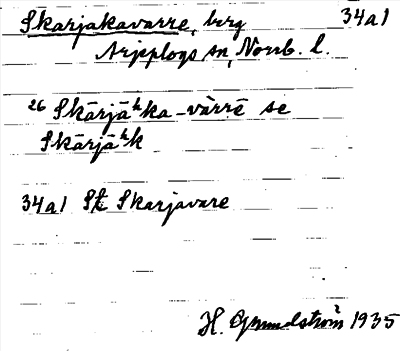 Skarjakavarre, berg 34a1
Arjeplogs sn, Norrb. l.
26 Skārjāʰka-vàrrē se
Skārjāʰk
34a1 St Skarjavare
H. Grundström 1935